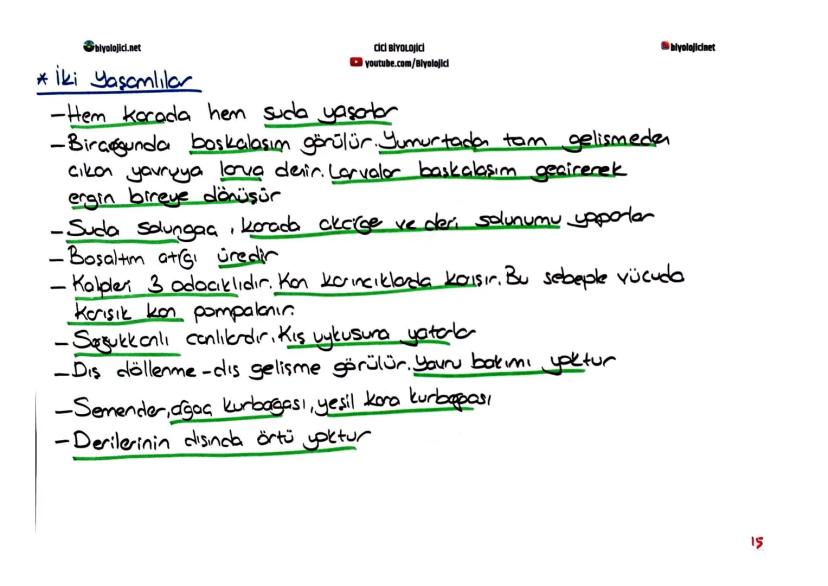 biyolojici.net
CİCİ BİYOLOJİCİ
youtube.com/Biyolojici
biyolojicinet
* İki Yaşamlılar
- Hem karada hem suda yaşarlar
- Birçoğunda başkalaşım görülür. Yumurtadan tam gelişmeden
çıkan yavruya larva denir. Larvalar başkalaşım geçirerek
ergin bireye dönüşür
- Suda solungaç, karada akciğe ve deri solunumu yaparlar
- Boşaltım atığı üredir
- Kalpleri 3 odacıklıdır. Kan karıncıklarda karışır. Bu sebeple vücuda
karışık kan pompalanır.
- Soğukkanlı canlılardır. Kış uykusuna yatarlar
- Dış döllenme - dış gelişme görülür. Yavru bakımı yoktur
- Semender, ağaç kurbağası, yeşil kara kurbağası
- Derilerinin dışında örtü yoktur
15